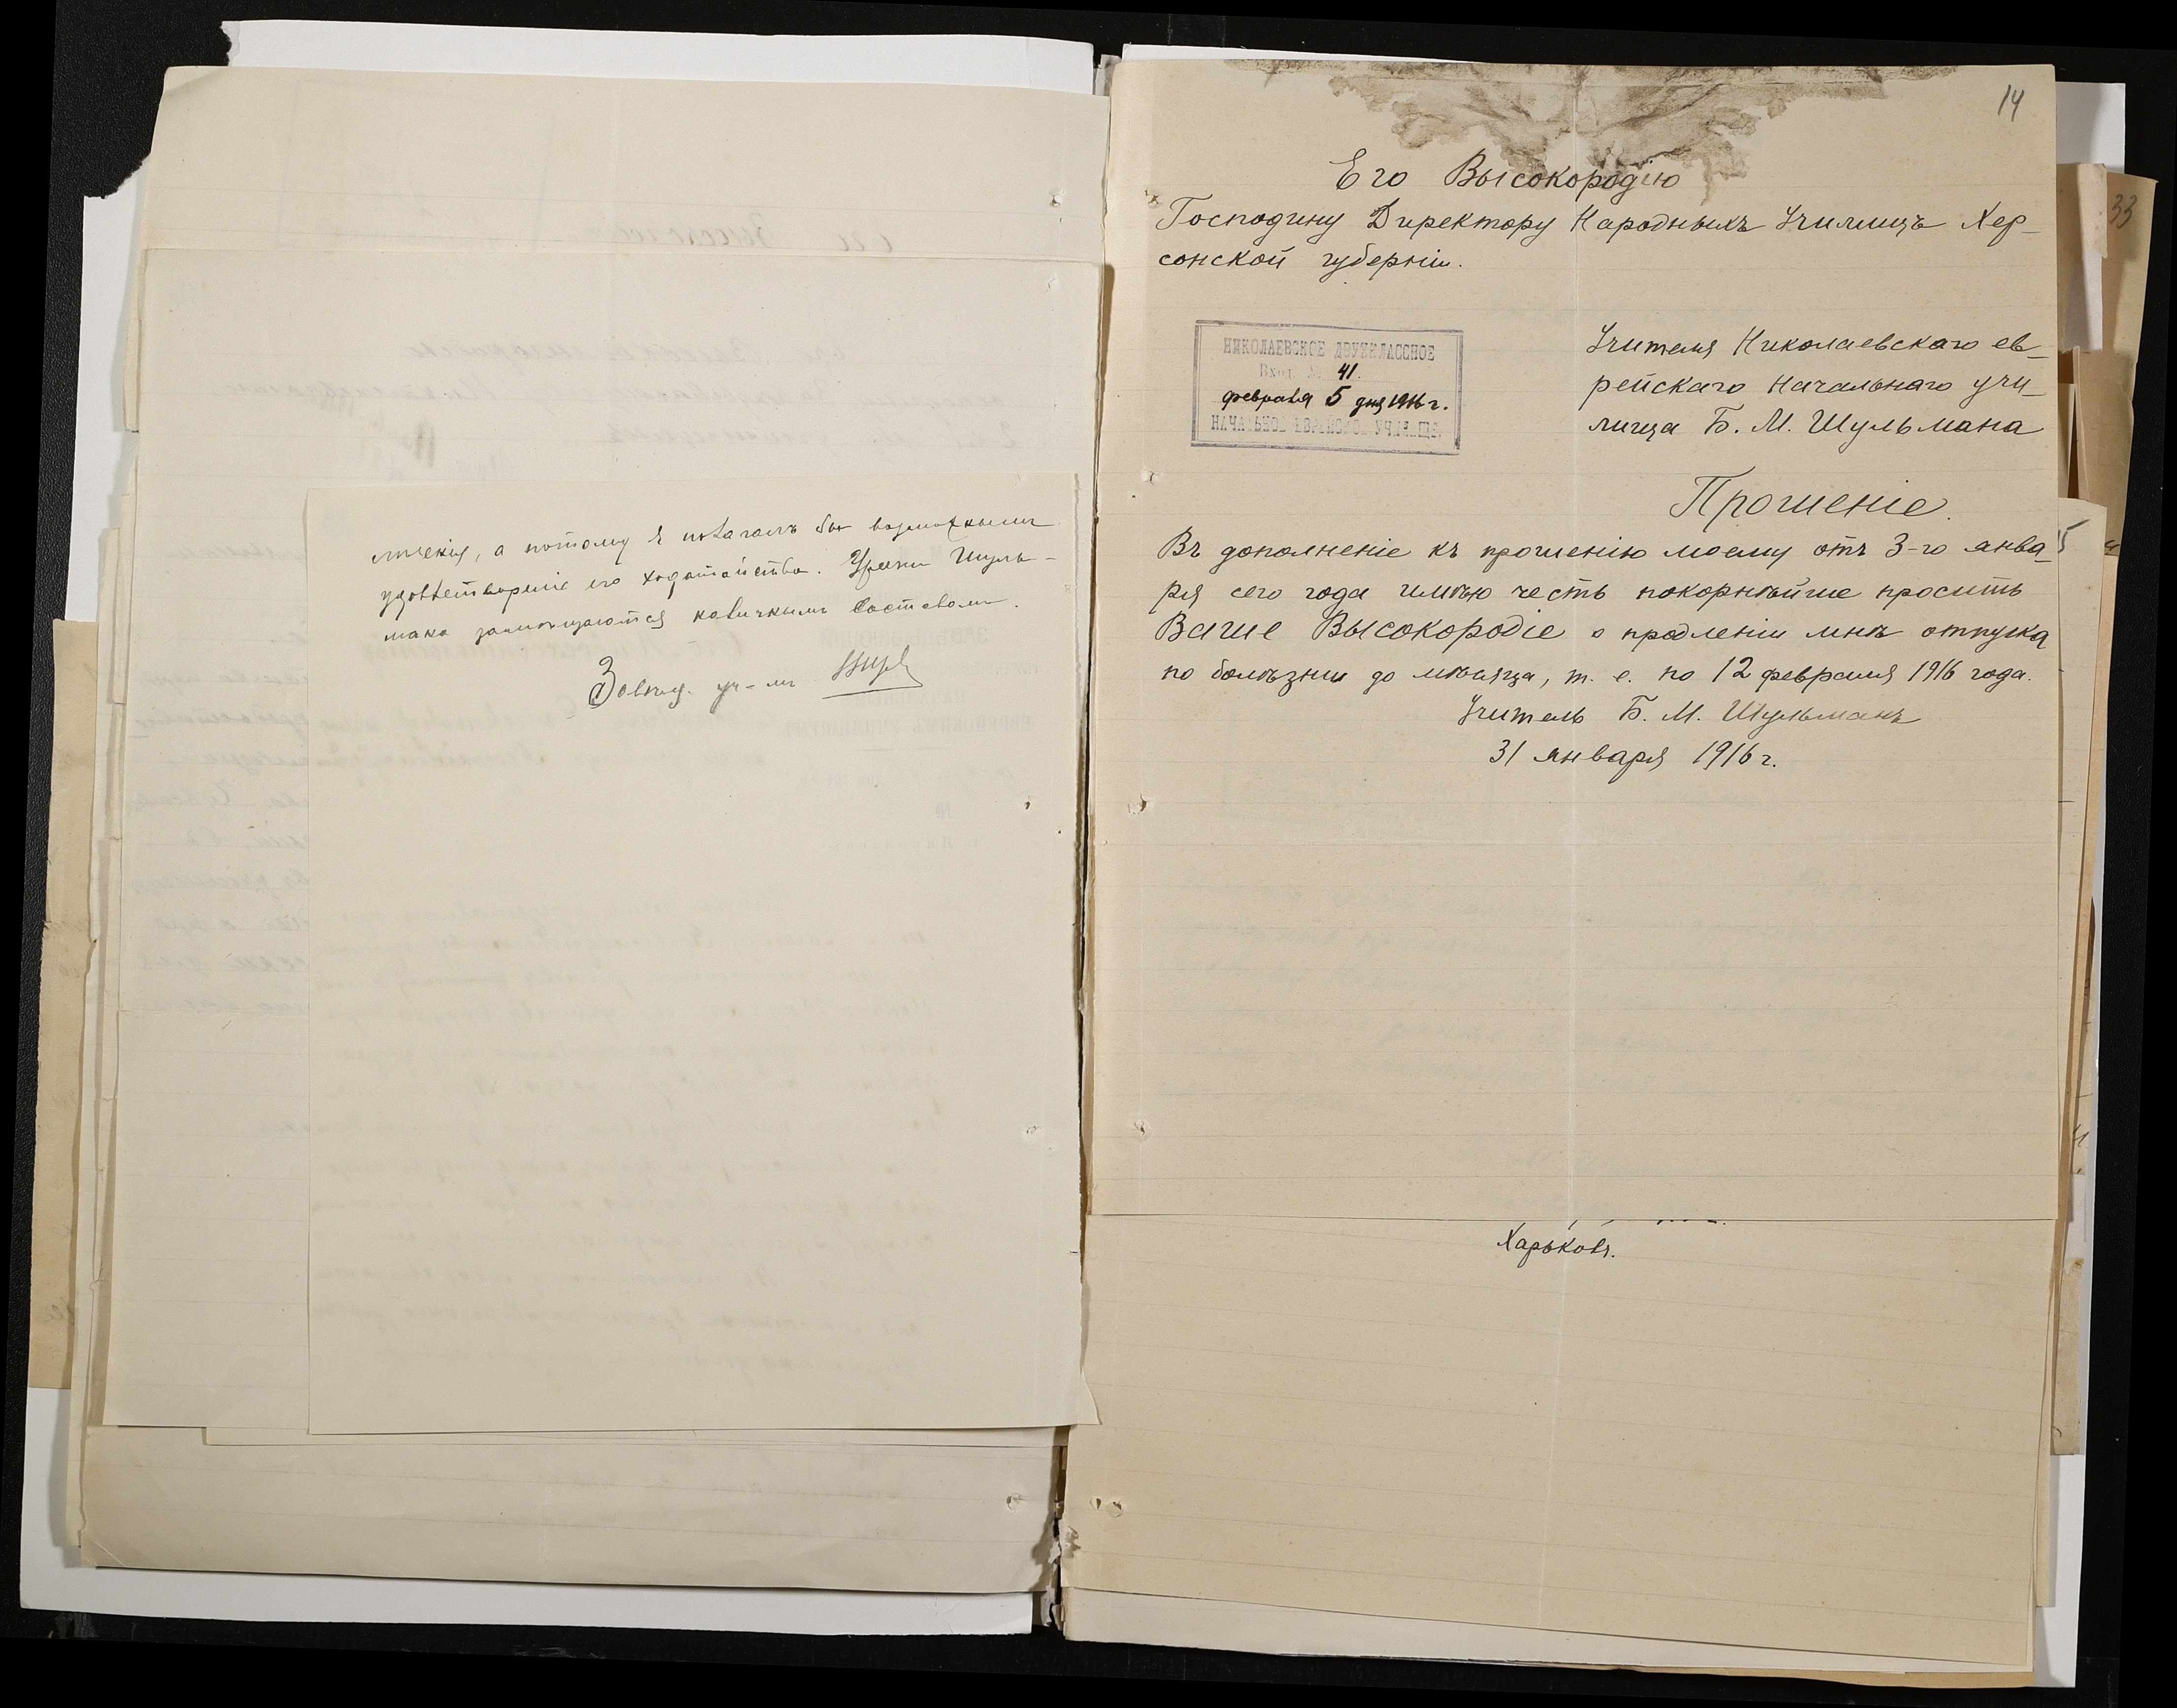 лѣченія, а потому я полагалъ бы возможнымъ
удовлетвореніе его ходатайства. Уроки Шуль-
мана замѣщаются наличнымъ составомъ.
Завѣд. уч-мъ
14
Его Высокородію
Господину Директору Народныхъ Училищъ Хер-
сонской губерніи.
НИКОЛАЕВСКОЕ ДВУХКЛАССНОЕ
Вход. № 41.
февраля 5 дня 1916 г.
НАЧАЛЬНОЕ ЕВРЕЙСКОЕ УЧИЛИЩЕ.
Учителя Николаевскаго ев-
рейскаго начальнаго учи-
лища Б. М. Шульмана
Прошеніе.
Въ дополненіе къ прошенію моему отъ 3-го янва-
ря сего года имѣю честь покорнѣйше просить
Ваше Высокородіе о продленіи мнѣ отпуска
по болѣзни до мѣсяца, т. е. по 12 февраля 1916 года.
Учитель Б. М. Шульманъ
31 января 1916 г.
Харьковъ.
33